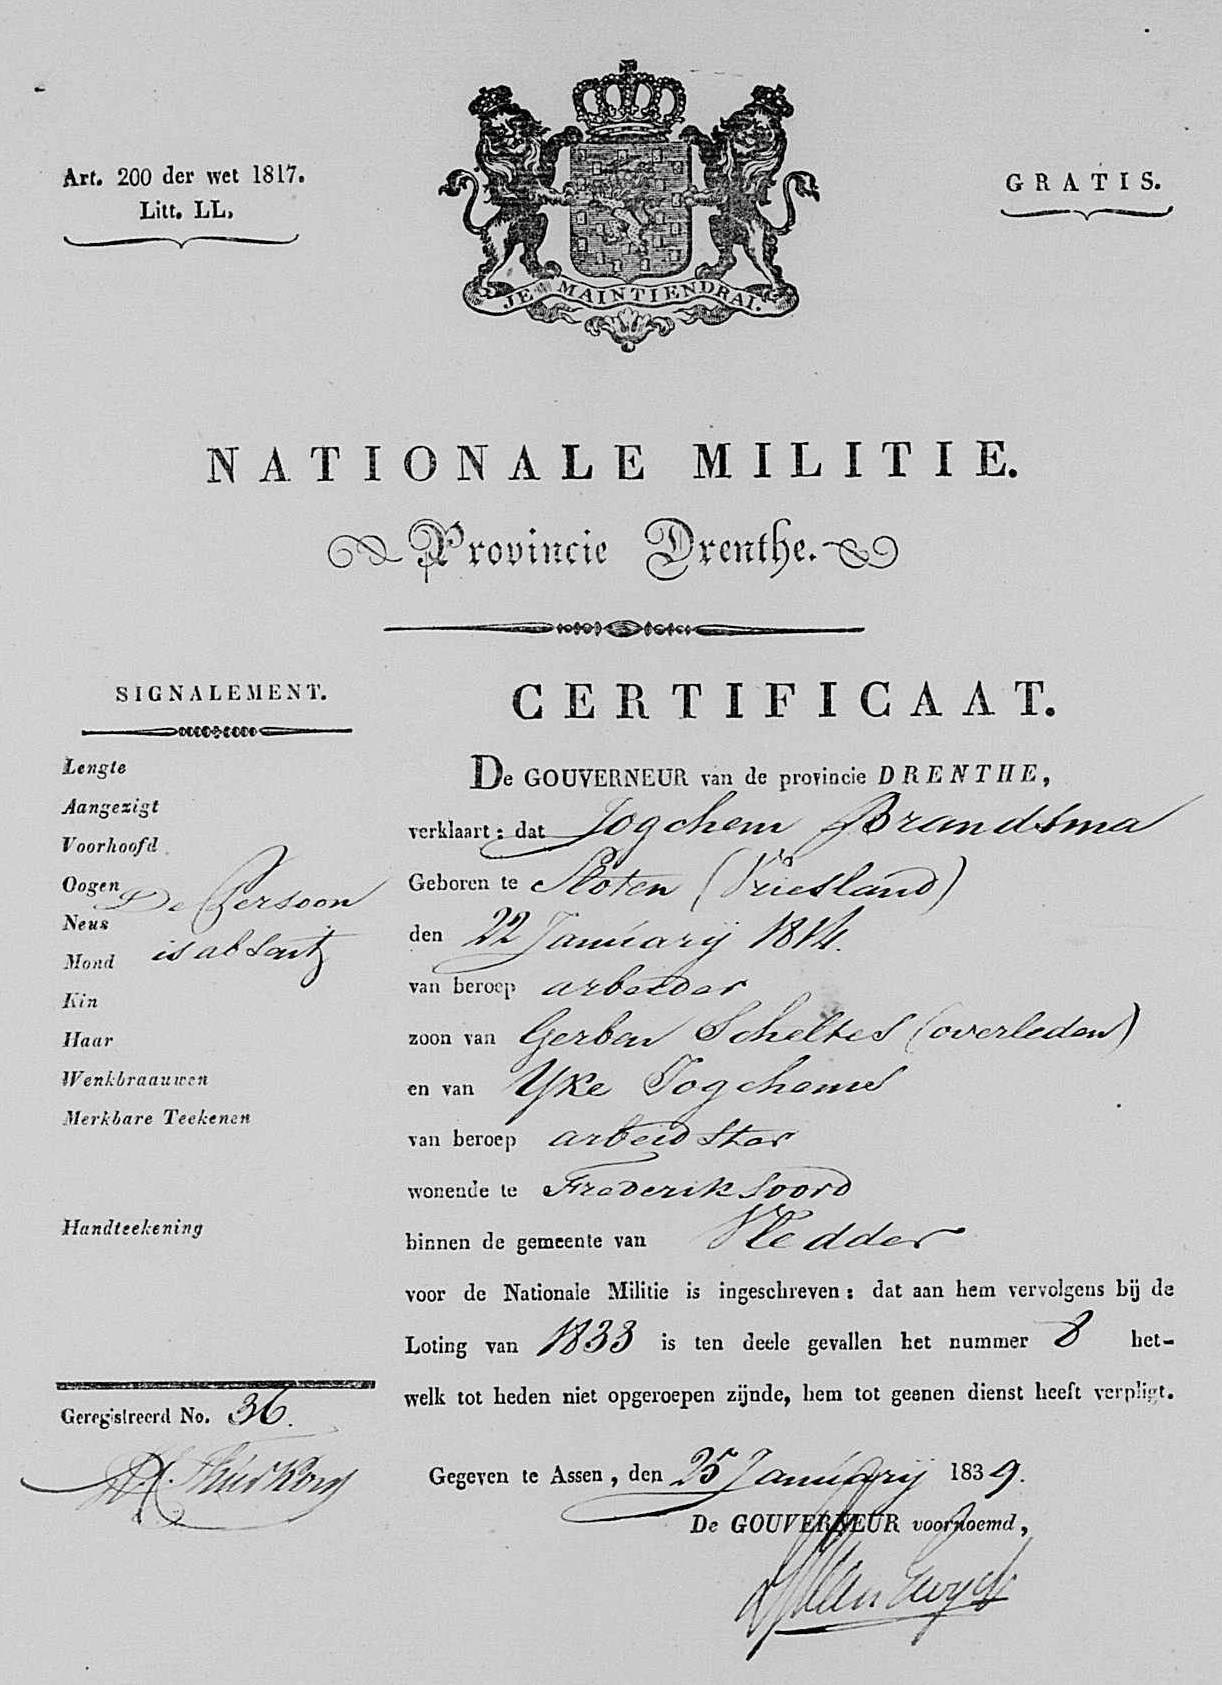 Art. 200 der wet 1817.
Litt. LL.
GRATIS.
JE MAINTIENDRAI.
NATIONALE MILITIE.
Provincie Drenthe.
SIGNALEMENT.
Lengte
Aangezigt
Voorhoofd
Oogen
De Persoon
Neus
is absent
Mond
Kin
Haar
Wenkbraauwen
Merkbare Teekenen
Handteekening
Geregistreerd No. 36.
CERTIFICAAT.
De GOUVERNEUR van de provincie DRENTHE,
verklaart: dat Jogchem Brandsma
Geboren te Sloten (Vriesland)
den 22 Januarij 1814.
van beroep arbeider
zoon van Gerben Scheltes (overleden)
en van Yke Jogchems
van beroep arbeidster
wonende te Frederiksoord
binnen de gemeente van Vledder
voor de Nationale Militie is ingeschreven: dat aan hem vervolgens bij de
Loting van 1833 is ten deele gevallen het nummer 8 het-
welk tot heden niet opgeroepen zijnde, hem tot geenen dienst heeft verpligt.
Gegeven te Assen, den 25 Januarij 1839.
De GOUVERNEUR voornoemd,